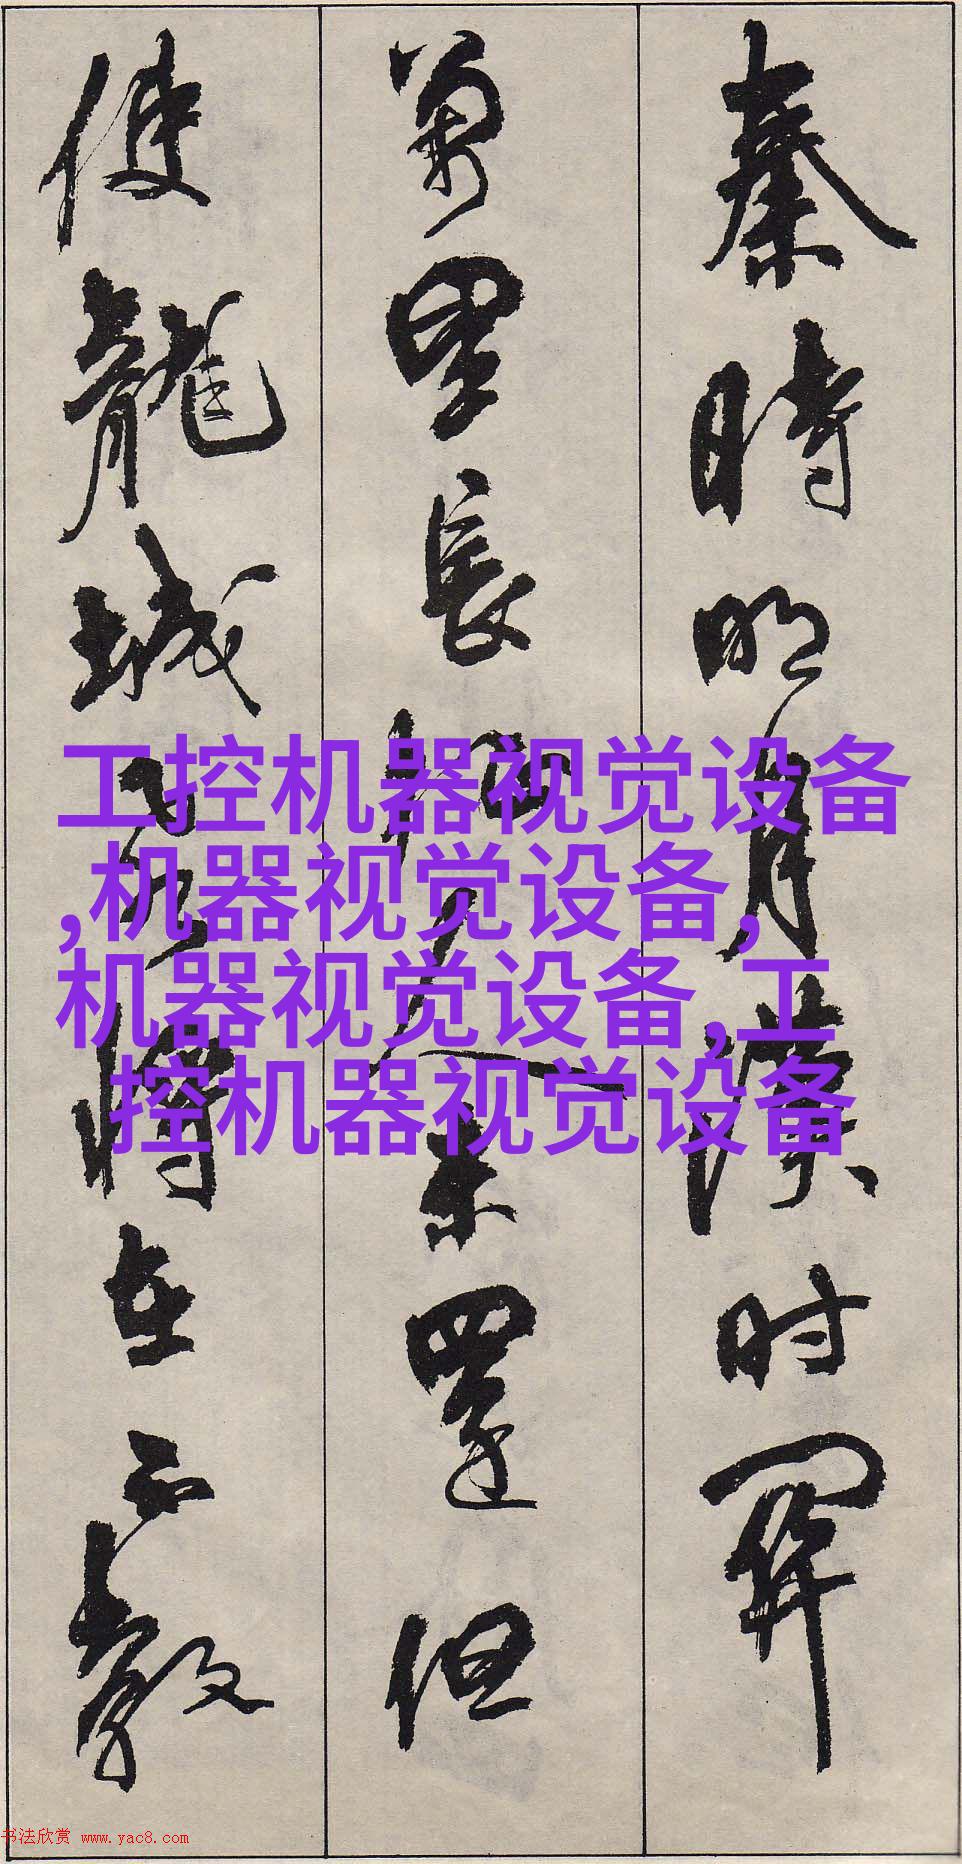 秦時明月漢时関
萬里長征人未還但
使龍城飛將在不教
工控机器视觉设备
,机器视觉设备,
机器视觉设备,工
控机器视觉设备
书法欣赏 www.yac8.com